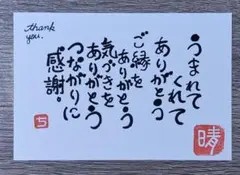 thank
you.
うまれて
くれて
ありがとう
ご縁を
ありがとう
気づきを
ありがとう
つながりに
感謝。
ち
晴